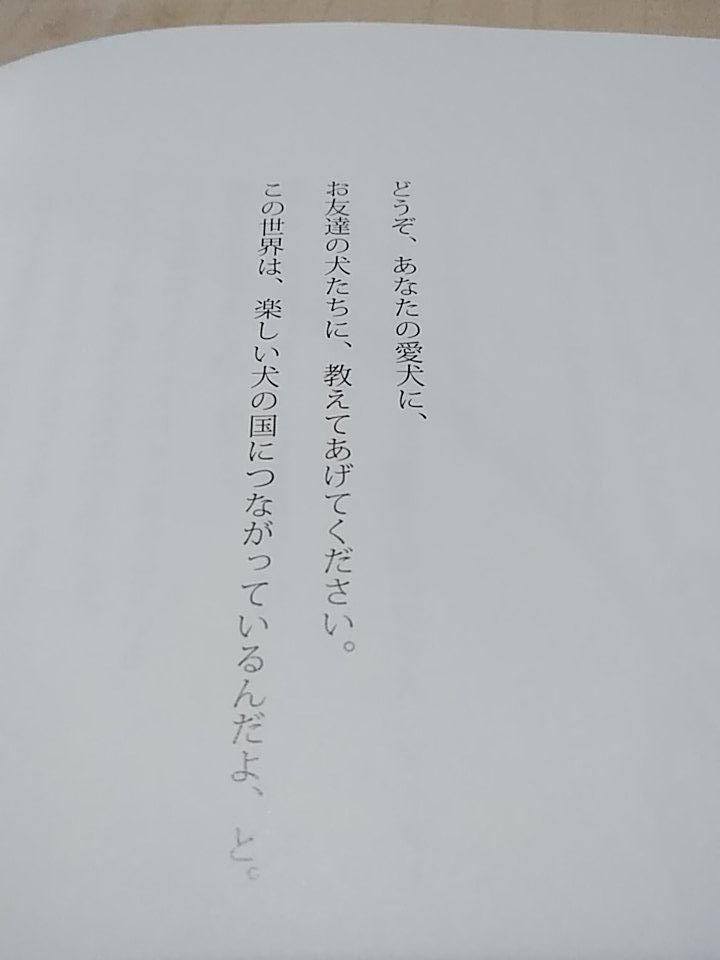 どうぞ、あなたの愛犬に、
お友達の犬たちに、教えてあげてください。
この世界は、楽しい犬の国につながっているんだよ、と。